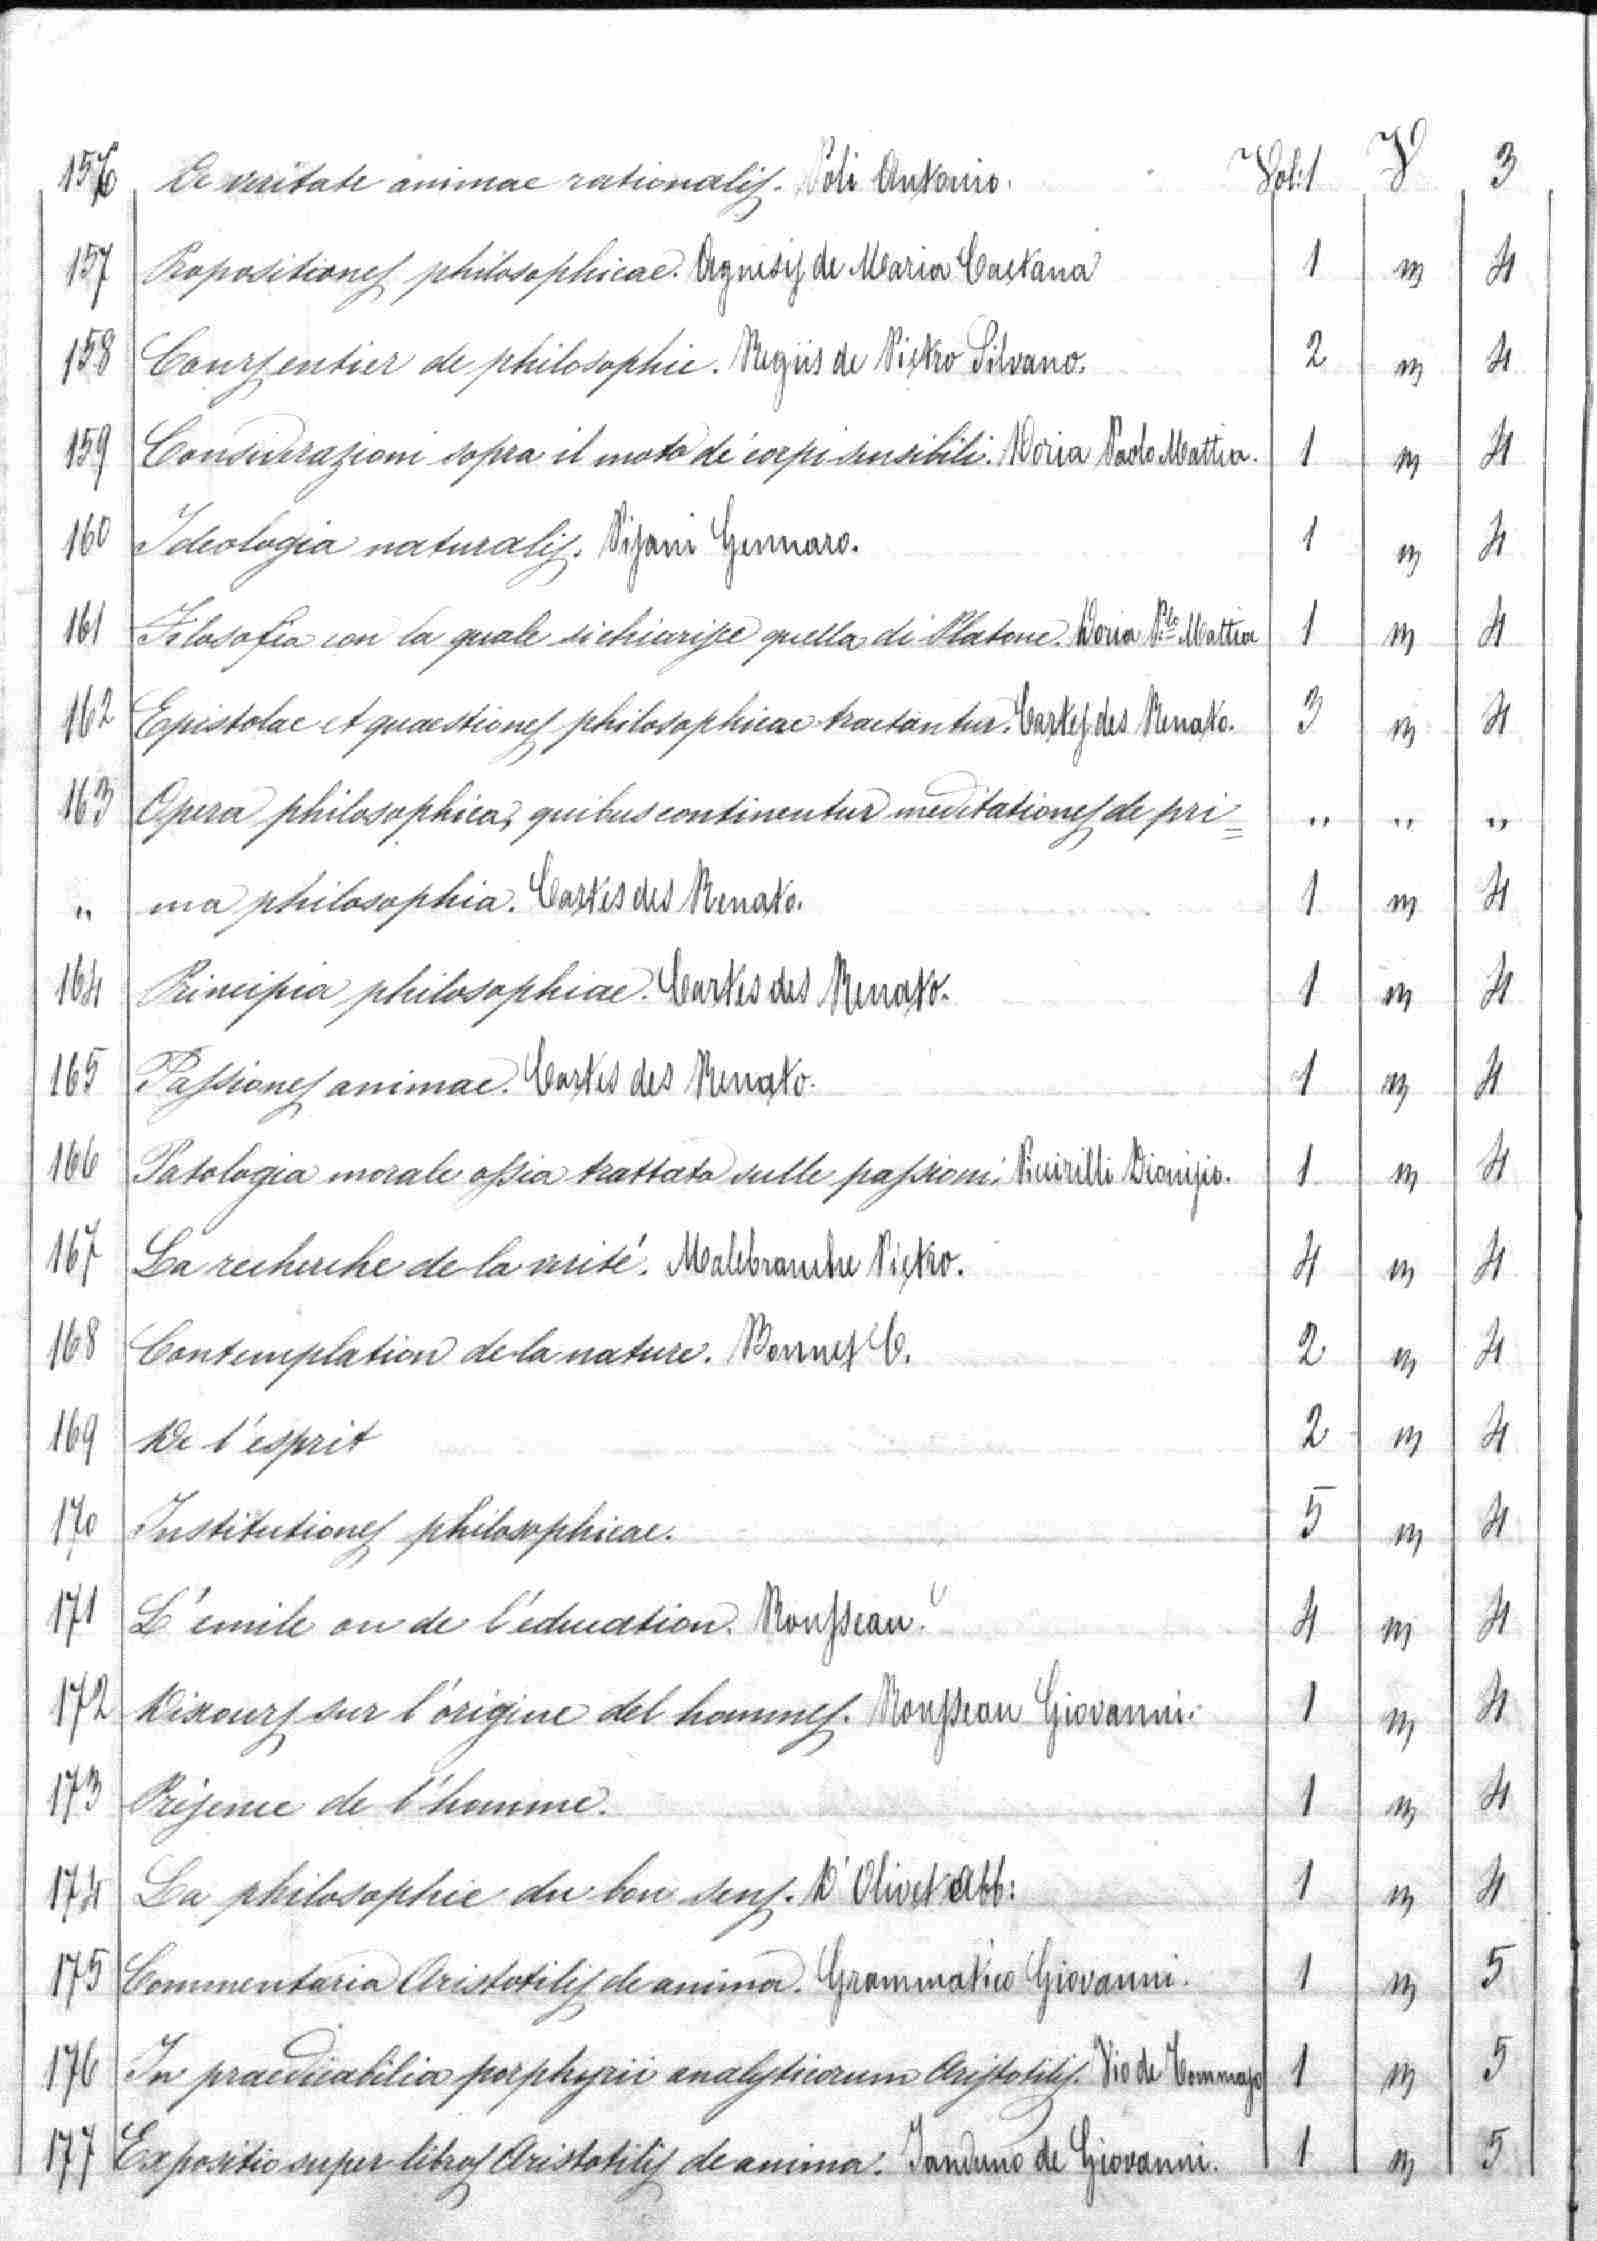 156 De veritate animae rationalis. Poli Antonio. Vol: 1 V 3
157 Propositiones philosophicae. Agnesis de Maria Caetana 1 " 4
158 Cours entier de philosophie. Regiis de Pietro Silvano. 2 " 4
159 Considerazioni sopra il moto de' corpi sensibili. Doria Paolo Mattia. 1 " 4
160 Ideologia naturalis. Pisani Gennaro. 1 " 4
161 Filosofia con la quale si chiarisce quella di Platone. Doria P.lo Mattia 1 " 4
162 Epistolae et quaestiones philosophicae tractantur. Cartes des Renato. 3 " 4
163 Opera philosophica, quibus continentur meditationes de pri= " " "
" ma philosophia. Cartes des Renato. 1 " 4
164 Principia philosophiae. Cartes des Renato. 1 " 4
165 Passiones animae. Cartes des Renato. 1 " 4
166 Patologia morale ossia trattato sulle passioni. Dionisio. 1 " 4
167 La recherche de la verité. Malebranche Pietro. 4 " 4
168 Contemplation de la nature. Bonnet C. 2 " 4
169 De l'esprit 2 " 4
170 Institutiones philosophicae. 5 " 4
171 L'émile ou de l'éducation. Rousseau. 4 " 4
172 Discours sur l'origine del hommes. Rousseau Giovanni. 1 " 4
173 Présence de l'homme. 1 " 4
174 La philosophie du bon sens. D'Olivet Abb: 1 " 4
175 Commentaria Aristotilis de anima. Grammatico Giovanni. 1 " 5
176 In praedicabilia porphyrii analyticorum Aristotilis. Vio de Tommaso 1 " 5
177 Expositio super libros Aristotilis de anima. Janduno de Giovanni. 1 " 5